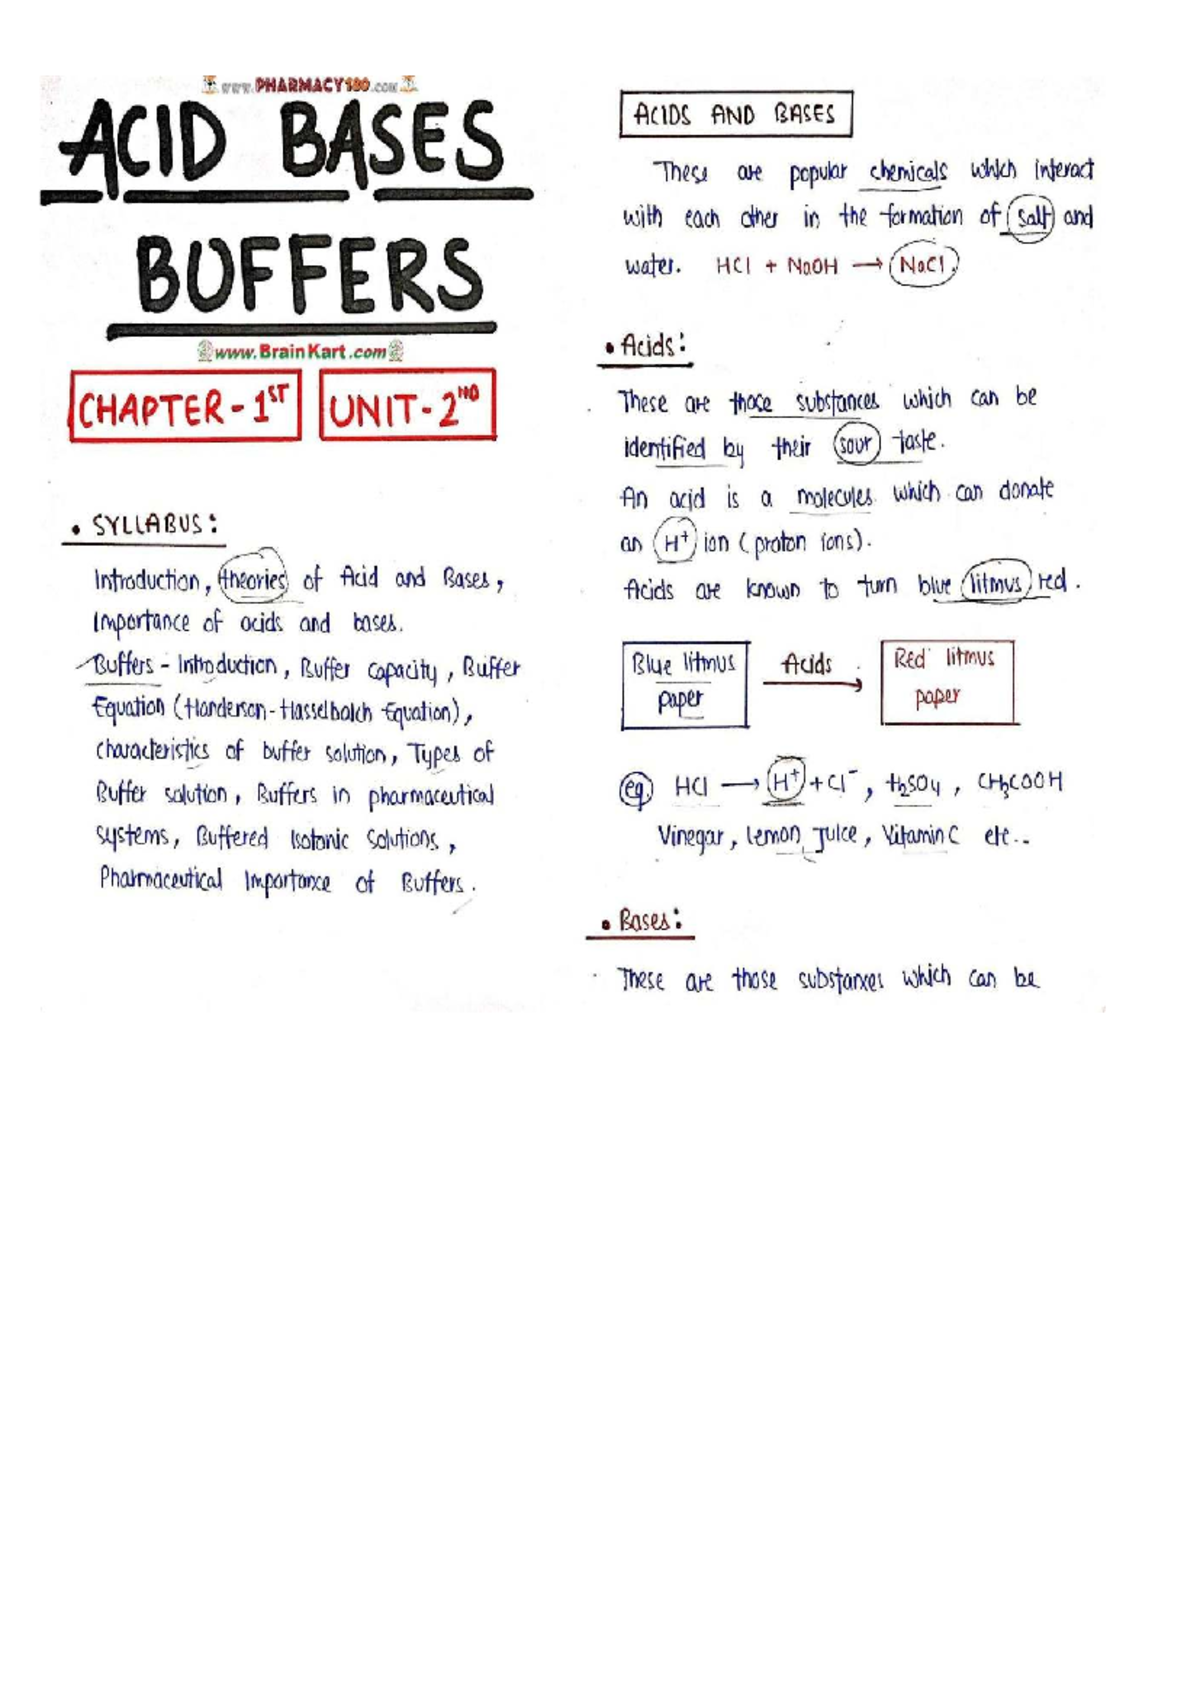 www.PHARMACY180.com
ACID BASES
BUFFERS
www.BrainKart.com
CHAPTER-1ST UNIT-2ND
• SYLLABUS:
Introduction, theories of Acid and Bases,
Importance of acids and bases.
Buffers - Introduction, Buffer capacity, Buffer
Equation (Handerson-Hasselbalch Equation),
characteristics of buffer solution, Types of
Buffer solution, Buffers in pharmaceutical
systems, Buffered Isotonic Solutions,
Pharmaceutical Importance of Buffers.
ACIDS AND BASES
These are popular chemicals which interact
with each other in the formation of salt and
water. HCl + NaOH → NaCl.
• Acids:
These are those substances which can be
identified by their sour taste.
An acid is a molecules which can donate
an H⁺ ion (proton ions).
Acids are known to turn blue litmus red.
Blue litmus paper Acids → Red litmus paper
eg. HCl → H⁺ + Cl⁻, H₂SO₄, CH₃COOH
Vinegar, Lemon Juice, Vitamin C etc..
• Bases:
These are those substances which can be